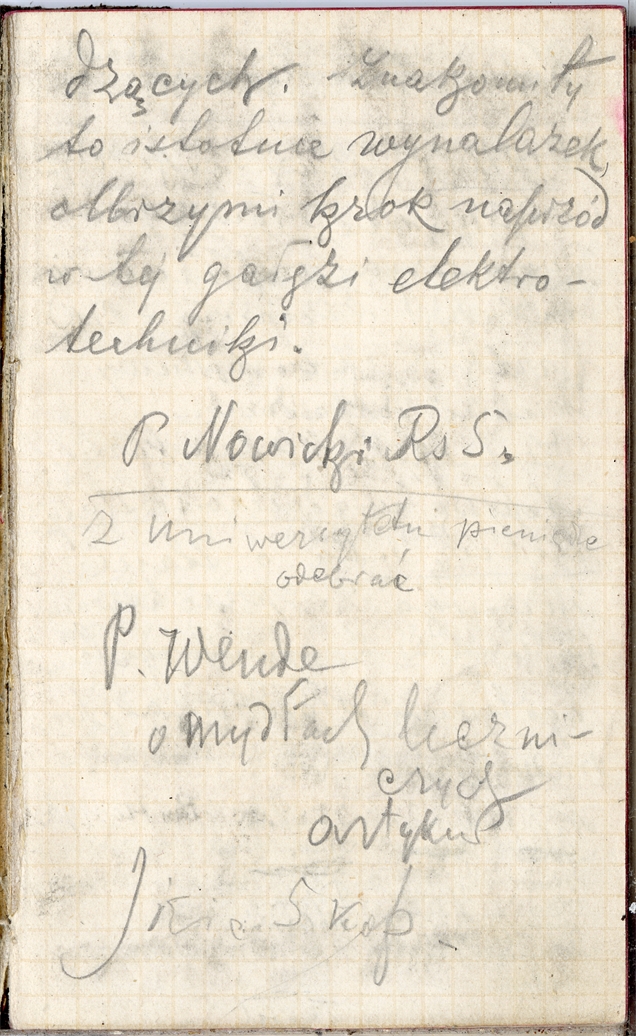 dzących. Znakomity
to istotnie wynalazek,
olbrzymi krok naprzód
w tej gałęzi elektro-
techniki.
P. Nowicki Rs 5.
z uniwersytetu pieniądze
odebrać
P. Wende
o mydłach leczni-
czych
artykuł
Józia 5 kop.